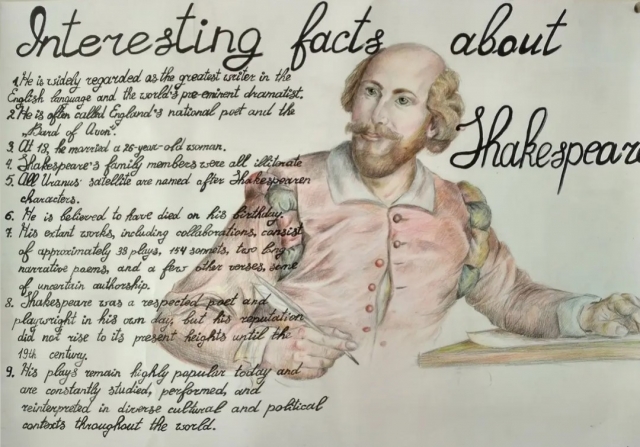 Interesting facts about
Shakespear
1. He is widely regarded as the greatest writer in the
English language and the world's pre-eminent dramatist.
2. He is often called England's national poet and the
„Bard of Avon".
3. At 18, he married a 26-year-old woman.
4. Shakespeare's family members were all illiterate
5. All Uranus' satellite are named after Shakespearen
characters.
6. He is believed to have died on his birthday.
7. His extant works, including collaborations, consist
of approximately 38 plays, 154 sonnets, two long
narrative poems, and a few other verses, some
of uncertain authorship.
8. Shakespeare was a respected poet and
playwright in his own day, but his reputation
did not rise to its present heights until the
19th century.
9. His plays remain highly popular today and
are constantly studied, performed, and
reinterpreted in diverse cultural and political
contexts throughout the world.